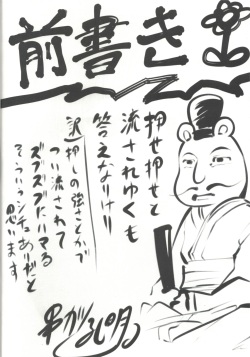 前書き
押せ押せと
流されゆくも
答えなりけり
訳)押しの強さとかで
つい流されて
ズブズブにハマる
そういうシチュもありだと
思います